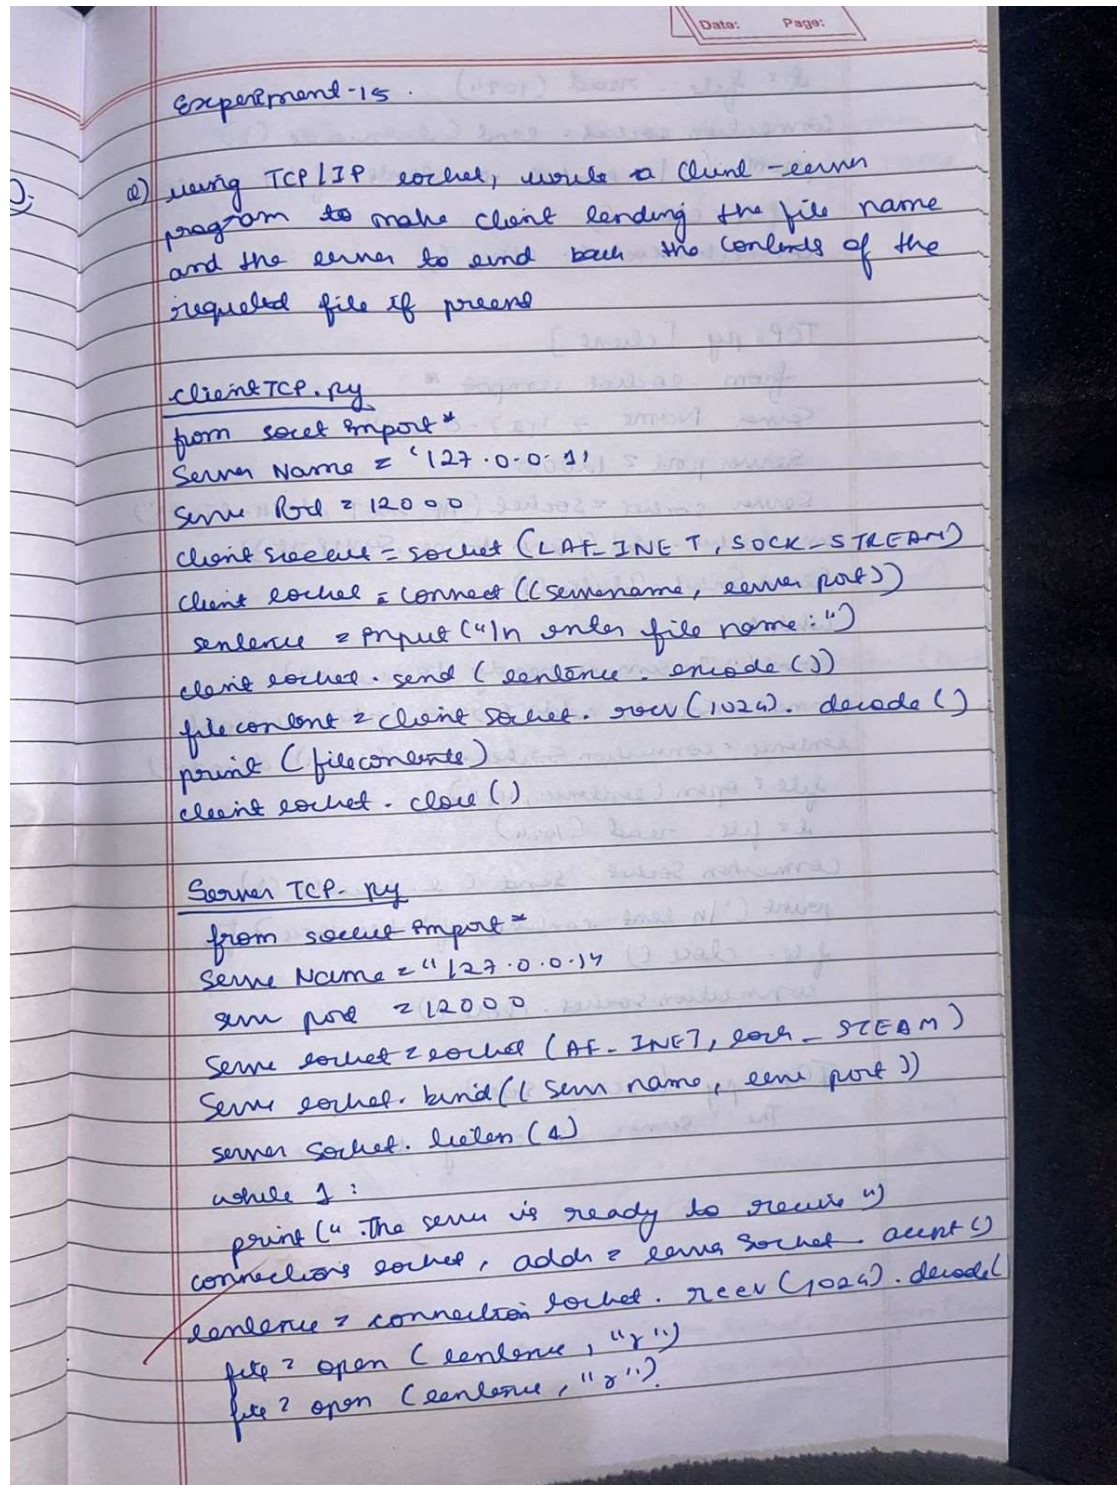 Date: Page:
Experiment-15.
Q) using TCP/IP socket, write a Client-server
program to make client sending the file name
and the server to send back the contents of the
requeled file if present
clientTCP.py
from socet import*
Server Name = '127.0.0.1'
Serve Port = 12000
client socket = socket (LAF_INET, SOCK_STREAM)
client socket = connect ((servername, server port))
sentence = input ("\n enter file name:")
client socket. send (sentence. encode ())
filecontent = client socket. recv (1024). decode ()
print (filecontents)
client socket. close ()
Server TCP. py
from socket import*
Serve Name = "127.0.0.1"
serve port = 12000
Serve socket = socket (AF_INET, sock_STEAM)
Serve socket. bind (( serve name, serve port ))
server socket. listen (1)
while 1 :
print (" The server is ready to receive ")
connections socket, addr = server socket. accept ()
sentence = connection socket. recev (1024). decode(
file = open (sentence, "r")
file = open (sentence, "r").